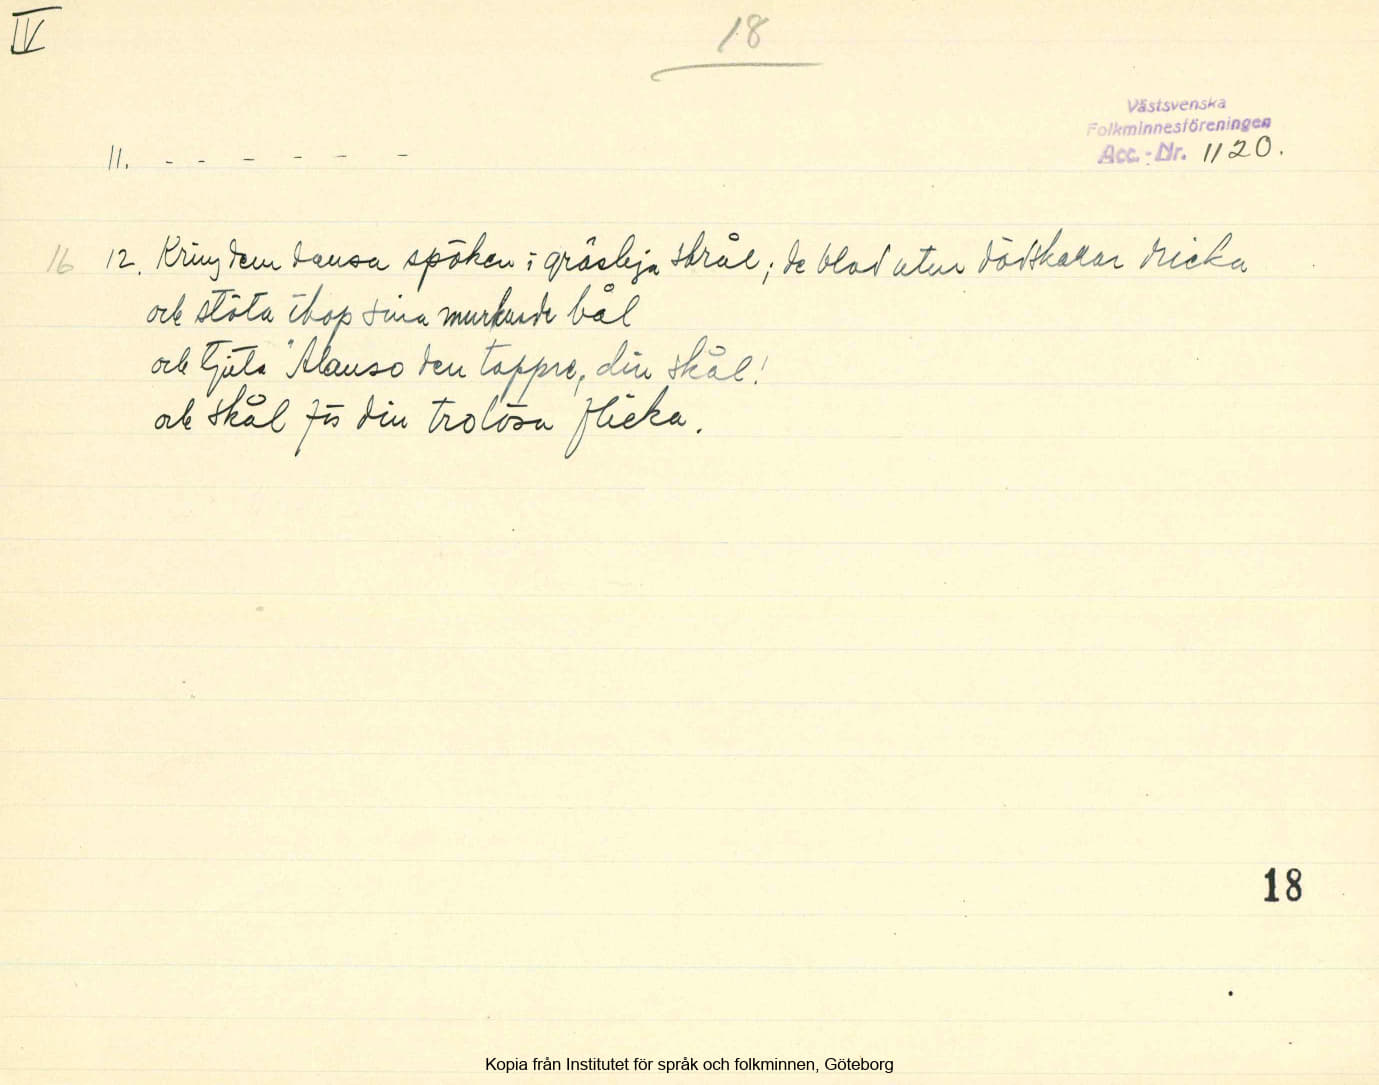 IV
18
Västsvenska
Folkminnesföreningen
Acc.-Nr. 1120.
11. - - - - - -
16 12. Kring dem dansa spöken i gräsliga skrål; de blod utur dödskallar dricka
och stöta ihop sina murknade bål
och tjuta "Alonso den tappre, din skål!
och skål för din trolösa flicka.
18
Kopia från Institutet för språk och folkminnen, Göteborg